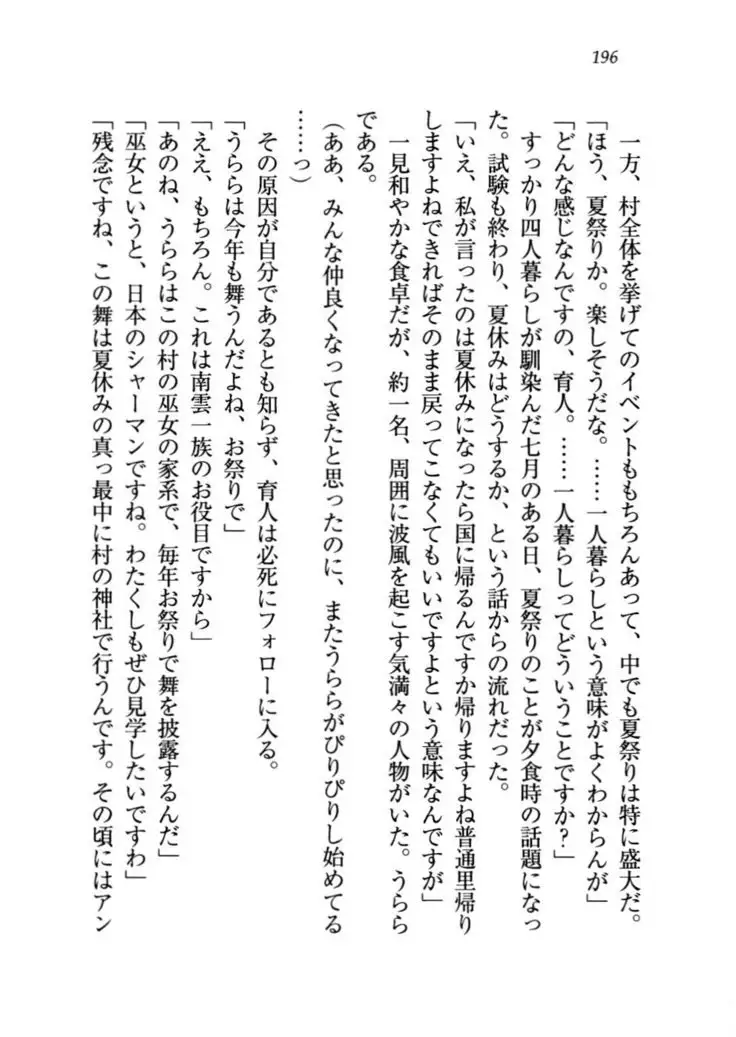 196
一方、村全体を挙げてのイベントももちろんあって、中でも夏祭りは特に盛大だ。
「ほう、夏祭りか。楽しそうだな。……一人暮らしという意味がよくわからんが」
「どんな感じなんですの、育人。……一人暮らしってどういうことですか?」
すっかり四人暮らしが馴染んだ七月のある日、夏祭りのことが夕食時の話題になっ
た。試験も終わり、夏休みはどうするか、という話からの流れだった。
「いえ、私が言ったのは夏休みになったら国に帰るんですか帰りますよね普通里帰り
しますよねできればそのまま戻ってこなくてもいいですよという意味なんですが」
一見和やかな食卓だが、約一名、周囲に波風を起こす気満々の人物がいた。うらら
である。
(ああ、みんな仲良くなってきたと思ったのに、またうららがぴりぴりし始めてる
……っ)
その原因が自分であるとも知らず、育人は必死にフォローに入る。
「うららは今年も舞うんだよね、お祭りで」
「ええ、もちろん。これは南雲一族のお役目ですから」
「あのね、うららはこの村の巫女の家系で、毎年お祭りで舞を披露するんだ」
「巫女というと、日本のシャーマンですね。わたくしもぜひ見学したいですわ」
「残念ですね、この舞は夏休みの真っ最中に村の神社で行うんです。その頃にはアン